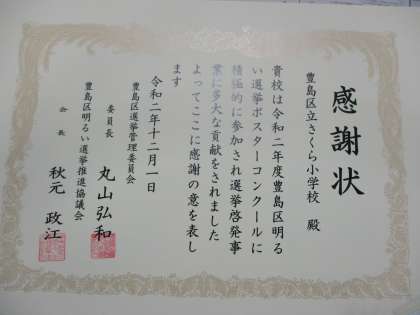 感謝状
豊島区立さくら小学校 殿
貴校は令和二年度豊島区明る
い選挙ポスターコンクールに
積極的に参加され選挙啓発事
業に多大な貢献をされました
よってここに感謝の意を表し
ます
令和二年十二月一日
豊島区選挙管理委員会
委員長 丸山弘和
豊島区明るい選挙推進協議会
会長 秋元政江